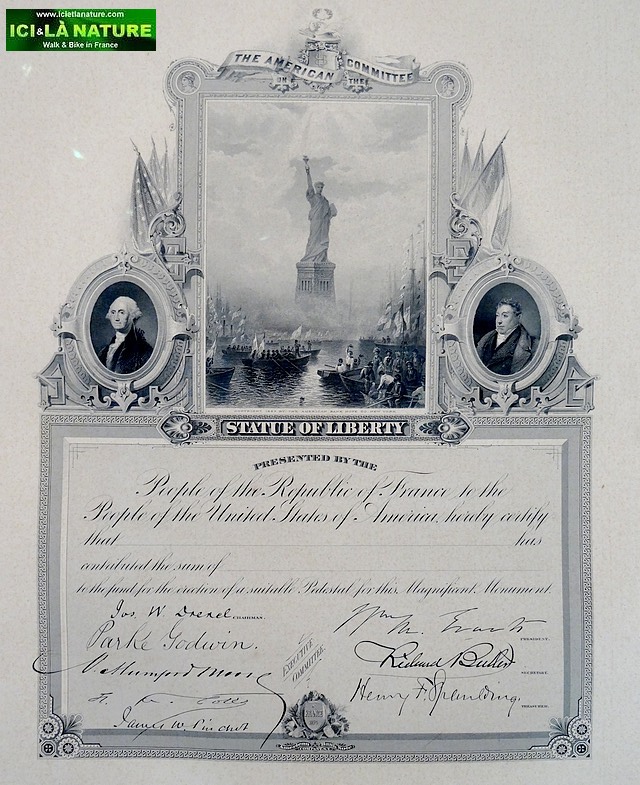 www.icietlanature.com
ICI & LÀ NATURE
Walk & Bike in France
THE AMERICAN COMMITTEE
THE
STATUE OF LIBERTY
PRESENTED BY THE
People of the Republic of France to the
People of the United States of America, hereby certify
that has
contributed the sum of
to the fund for the erection of a suitable Pedestal for this Magnificent Monument.
Jos. W. Drexel CHAIRMAN.
Wm M. Evarts PRESIDENT.
Parke Godwin.
EXECUTIVE COMMITTEE.
Richard Butler SECRETARY.
Henry F. Spaulding. TREASURER.
James W. Pinchot